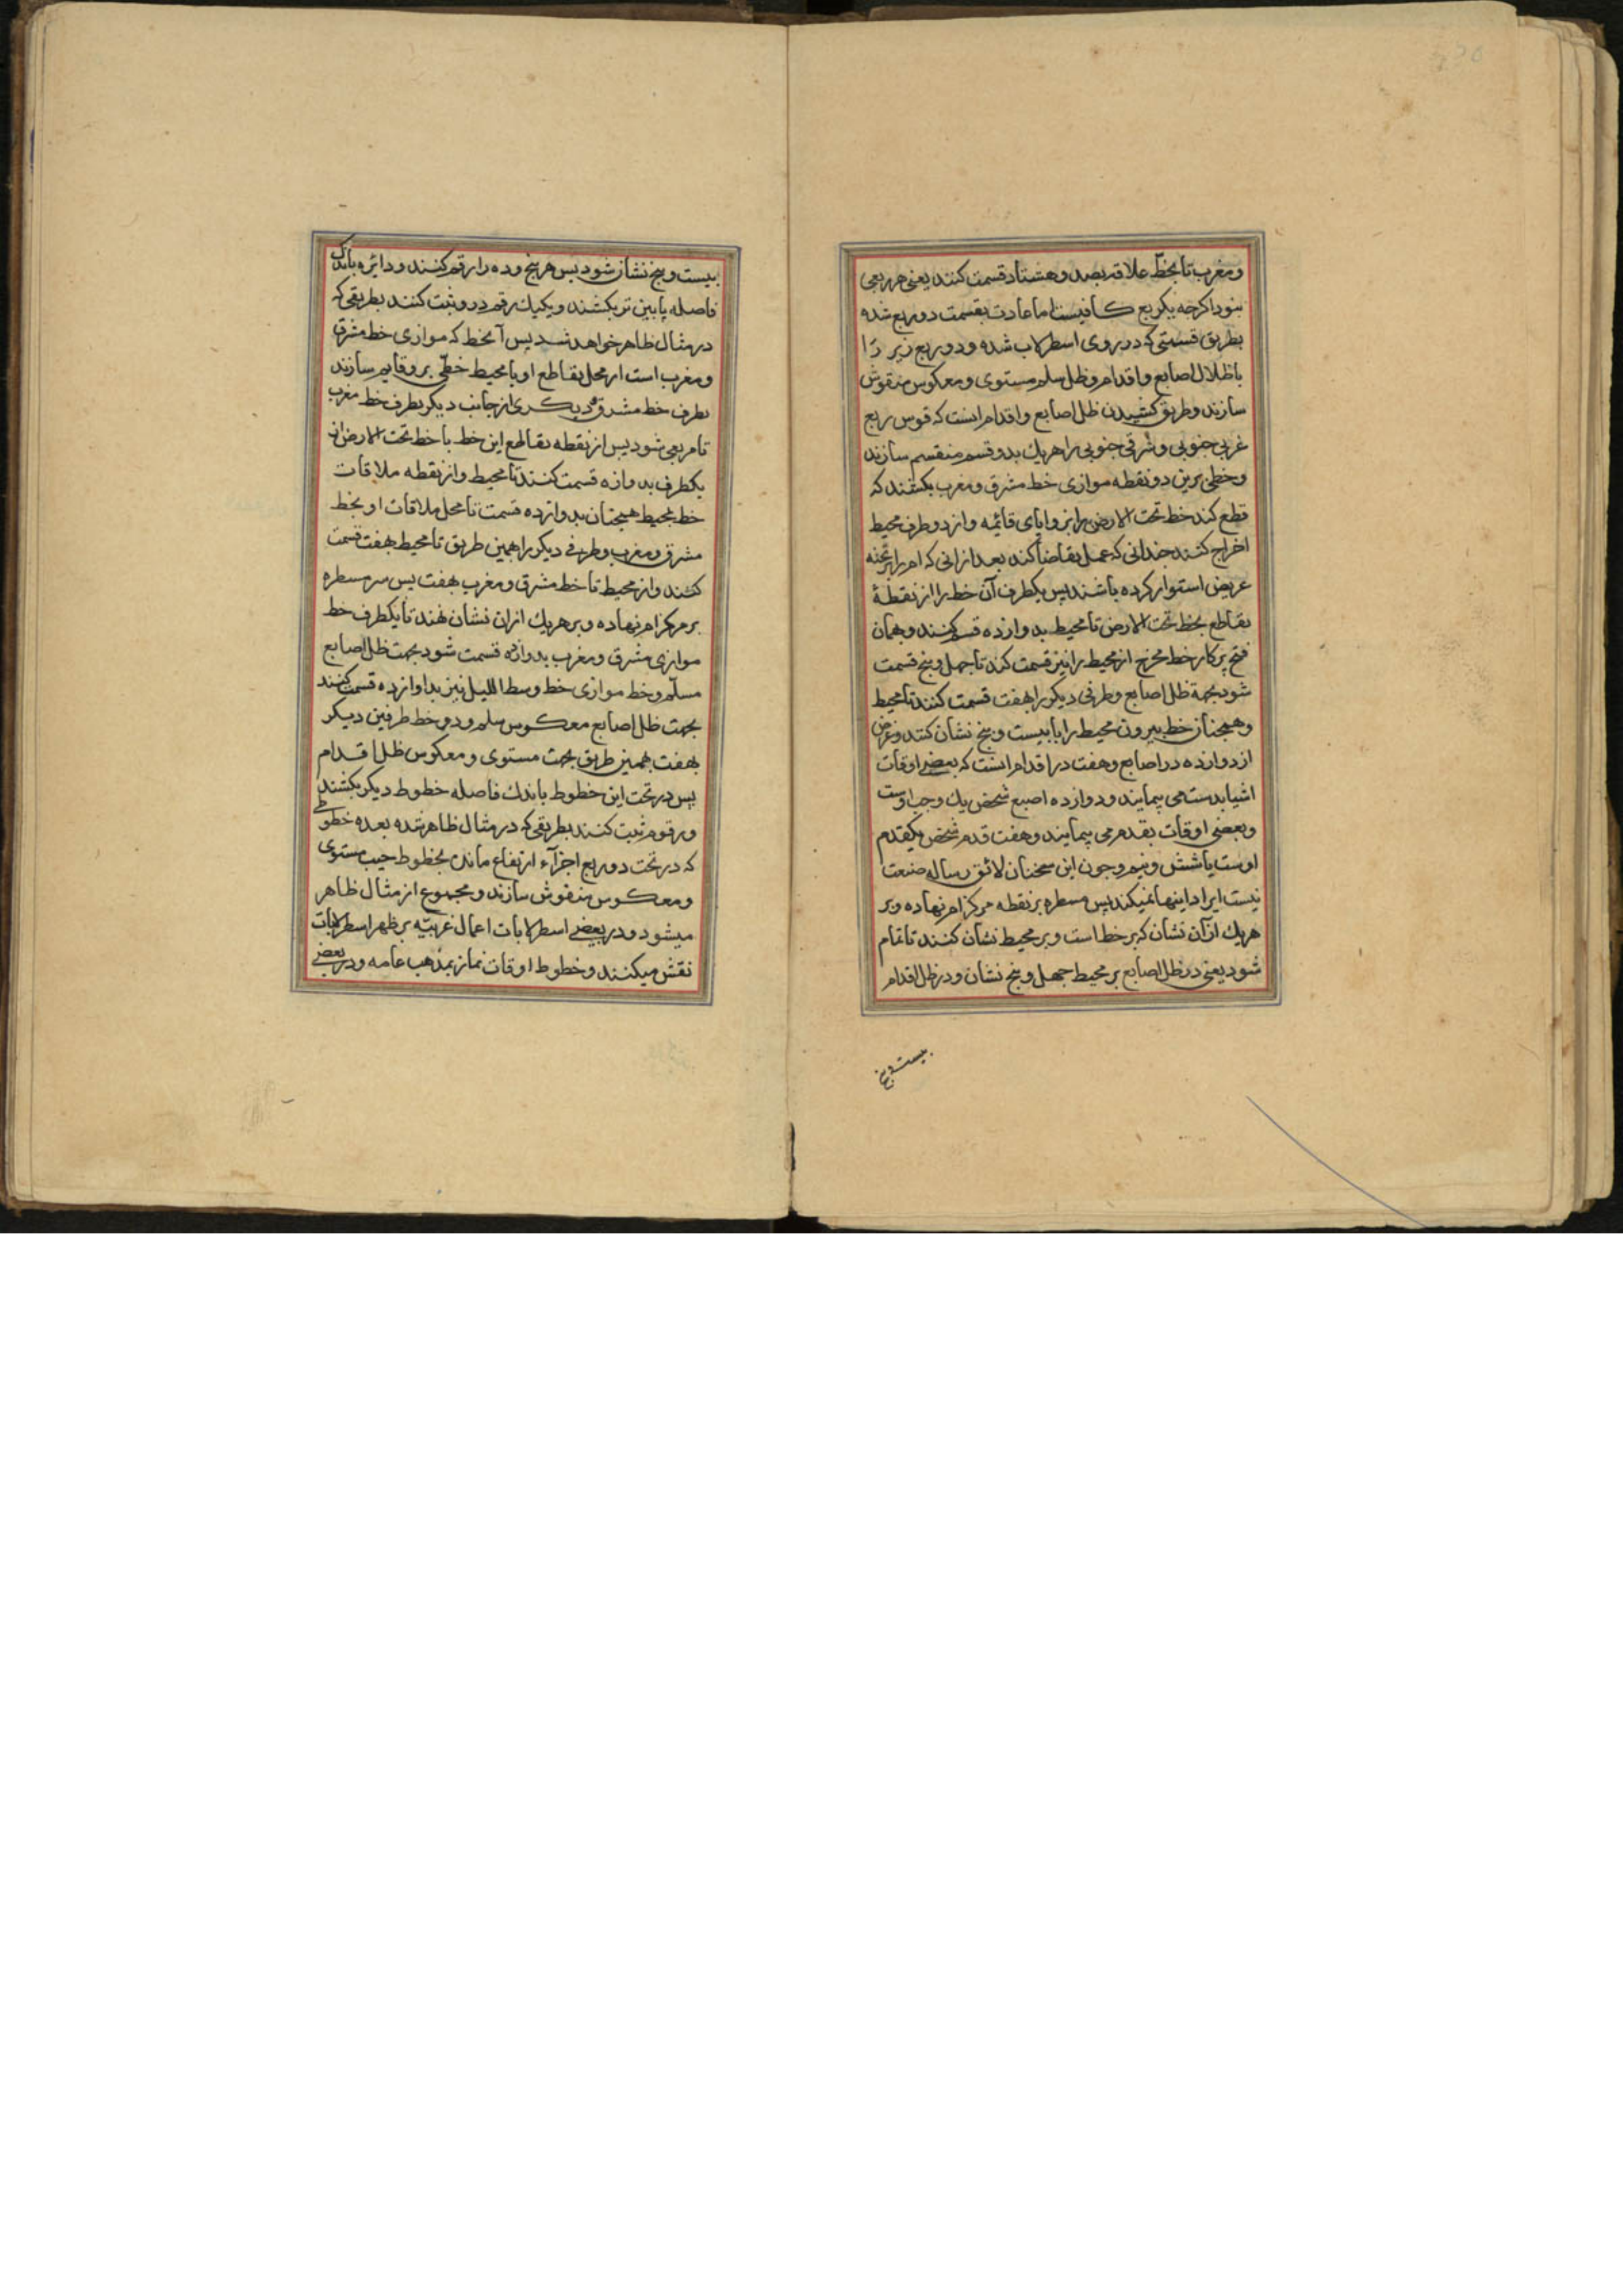 ومغرب تا بخط علاقه بصد وهشتاد قسمت کنند یعنی هر ربعی
بنود اکرچه یکربع کافیست اما عادت بقسمت دو ربع شده
بطریق قسمتی که در روی اسطرلاب شده ودو ربع زیر را
باظلال اصابع واقدام وظل سلم مستوی ومعکوس منقوش
سازند وطریق کشیدن ظل اصابع واقدام انست که قوس ربع
غربی جنوبی وشرقی جنوبی را هریك بدو قسم منقسم سازند
وخطی برین دو نقطه موازی خط مشرق ومغرب بکشند که
قطع کند خط تحت الارض را بزوایای قائمه واز دو طرف محیط
اخراج کنند چندانی که عمل تقاضا کند بعد ازانی که ام را بر تخته
عریض استوار کرده باشند پس یکطرف آن خط را از نقطهٔ
تقاطع بخط تحت الارض تا محیط بدوازده قسم کنند وهمان
فتح پرکار خط مخرج از محیط را نیز قسمت کند تا چهل وپنج قسمت
شود بجهة ظل اصابع وطرفی دیکر را بهفت قسمت کنند تا محیط
وهمچنان خط بیرون محیط را تا بیست وپنج نشان کنند وغرض
از دوازده در اصابع وهفت در اقدام انست که بعضی اوقات
اشیا بدست می پیمایند ودوازده اصبع شخص یك وجب اوست
وبعضی اوقات بقدم می پیمایند وهفت قدم شخص یکقدم
اوست یا شش ونیم وچون این سخنان لائق رساله صنعت
نیست ایراد اینها نمیکند پس مسطره بر نقطه مرکز ام نهاده وبر
هریك ازآن نشان که بر خط است وبر محیط نشان کنند تا تمام
شود یعنی در ظل اصابع بر محیط چهل وپنج نشان ودر ظل اقدام
بیست وپنج
بیست وپنج نشان شود پس هر پنج وده را رقم کنند ودائره باندک
فاصله پایین تر بکشند ویکیك رقم در و ثبت کنند بطریقی که
در مثال ظاهر خواهد شد پس آنخط که موازی خط مشرق
ومغرب است از محل تقاطع او با محیط خطی برو قایم سازند
بطرف خط مشرق ودیکری از جانب دیکر بطرف خط مغرب
تا مربعی شود پس از نقطه تقاطع این خط با خط تحت الارض ازان
یکطرف بدوازه قسمت کنند تا محیط واز نقطه ملاقات
خط بمحیط همچنان بدوازده قسمت تا محل ملاقات او بخط
مشرق ومغرب وطرفی دیکر را بهمین طریق تا محیط بهفت قسمت
کنند واز محیط تا خط مشرق ومغرب بهفت پس سر مسطره
بر مرکز ام نهاده وبر هریك ازان نشان نهند تا یکطرف خط
موازی مشرق ومغرب بدوازه قسمت شود بجهت ظل اصابع
مسلّم وخط موازی خط وسط اللیل نیز بداوازده قسمت کنند
بجهت ظل اصابع معکوس سلم ودو خط طرفین دیکر
بهفت بهمین طریق بجهت مستوی ومعکوس ظل اقدام
پس در تحت این خطوط باندك فاصله خطوط دیکر بکشند
ورقوم ثبت کنند بطریقی که در مثال ظاهر شده بعده خطوطی
که در تحت دو ربع اجزآء ارتفاع مانده بخطوط جیب مستوی
ومعکوس منقوش سازند ومجموع از مثال ظاهر
میشود ودر بعضی اسطرلابات اعمال غریبه بر ظهر اسطرلابات
نقش میکنند وخطوط اوقات نماز بمذهب عامه ودر بعضی